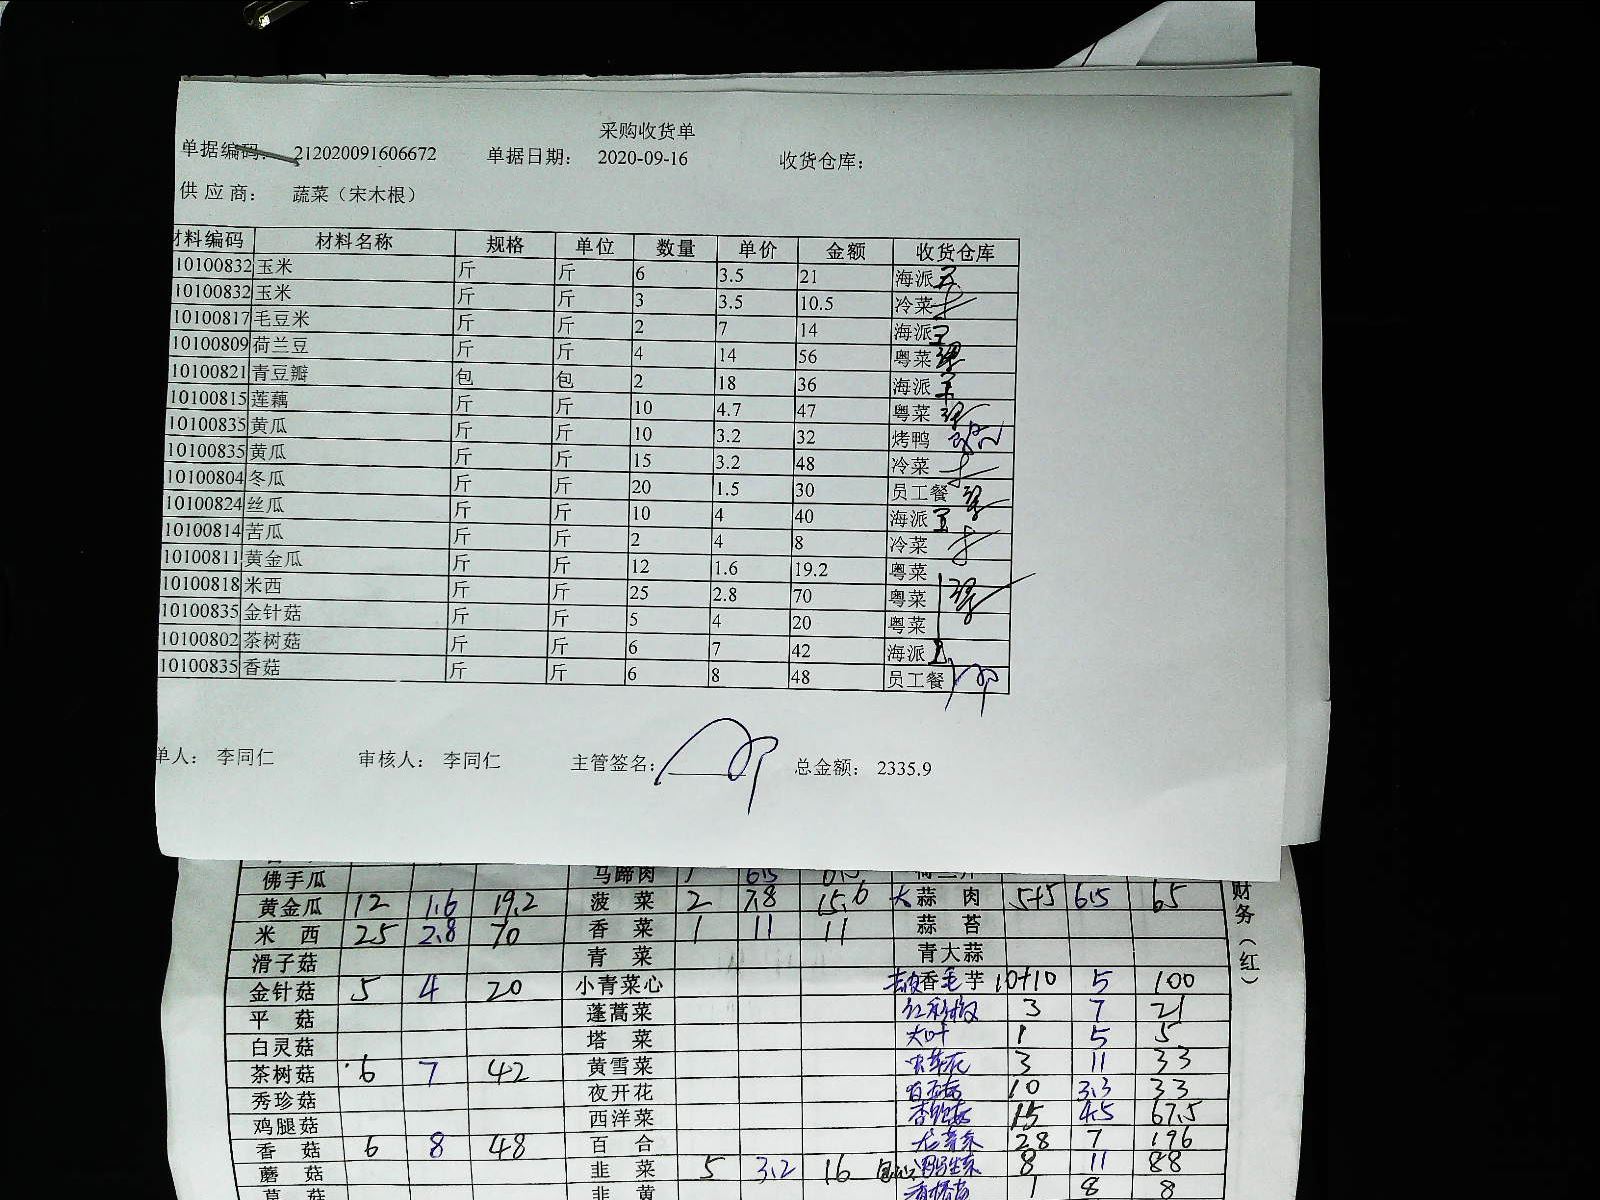 采购收货单
单据编码： 212020091606672 单据日期： 2020-09-16 收货仓库：
供应商： 蔬菜（宋木根）
材料编码 材料名称 规格 单位 数量 单价 金额 收货仓库
10100832 玉米 斤 斤 6 3.5 21 海派
10100832 玉米 斤 斤 3 3.5 10.5 冷菜
10100817 毛豆米 斤 斤 2 7 14 海派
10100809 荷兰豆 斤 斤 4 14 56 粤菜
10100821 青豆瓣 包 包 2 18 36 海派
10100815 莲藕 斤 斤 10 4.7 47 粤菜
10100835 黄瓜 斤 斤 10 3.2 32 烤鸭
10100835 黄瓜 斤 斤 15 3.2 48 冷菜
10100804 冬瓜 斤 斤 20 1.5 30 员工餐
10100824 丝瓜 斤 斤 10 4 40 海派
10100814 苦瓜 斤 斤 2 4 8 冷菜
10100811 黄金瓜 斤 斤 12 1.6 19.2 粤菜
10100818 米西 斤 斤 25 2.8 70 粤菜
10100835 金针菇 斤 斤 5 4 20 粤菜
10100802 茶树菇 斤 斤 6 7 42 海派
10100835 香菇 斤 斤 6 8 48 员工餐
单人： 李同仁 审核人： 李同仁 主管签名： 总金额： 2335.9
佛手瓜 马蹄肉 1 6.5 6.5
黄金瓜 12 1.6 19.2 菠菜 2 7.8 15.6 大蒜肉 5+5 6.5 65
米西 25 2.8 70 香菜 1 11 11 蒜苔
滑子菇 青菜 青大蒜
金针菇 5 4 20 小青菜心 去皮香毛芋 10+10 5 100
平菇 蓬蒿菜 3 7 21
白灵菇 塔菜 大叶 1 5 5
茶树菇 6 7 42 黄雪菜 3 11 33
秀珍菇 夜开花 10 3.3 33
鸡腿菇 西洋菜 15 4.5 67.5
香菇 6 8 48 百合 28 7 196
蘑菇 韭菜 5 3.2 16 8 11 88
草菇 韭黄 1 8 8
财务（红）